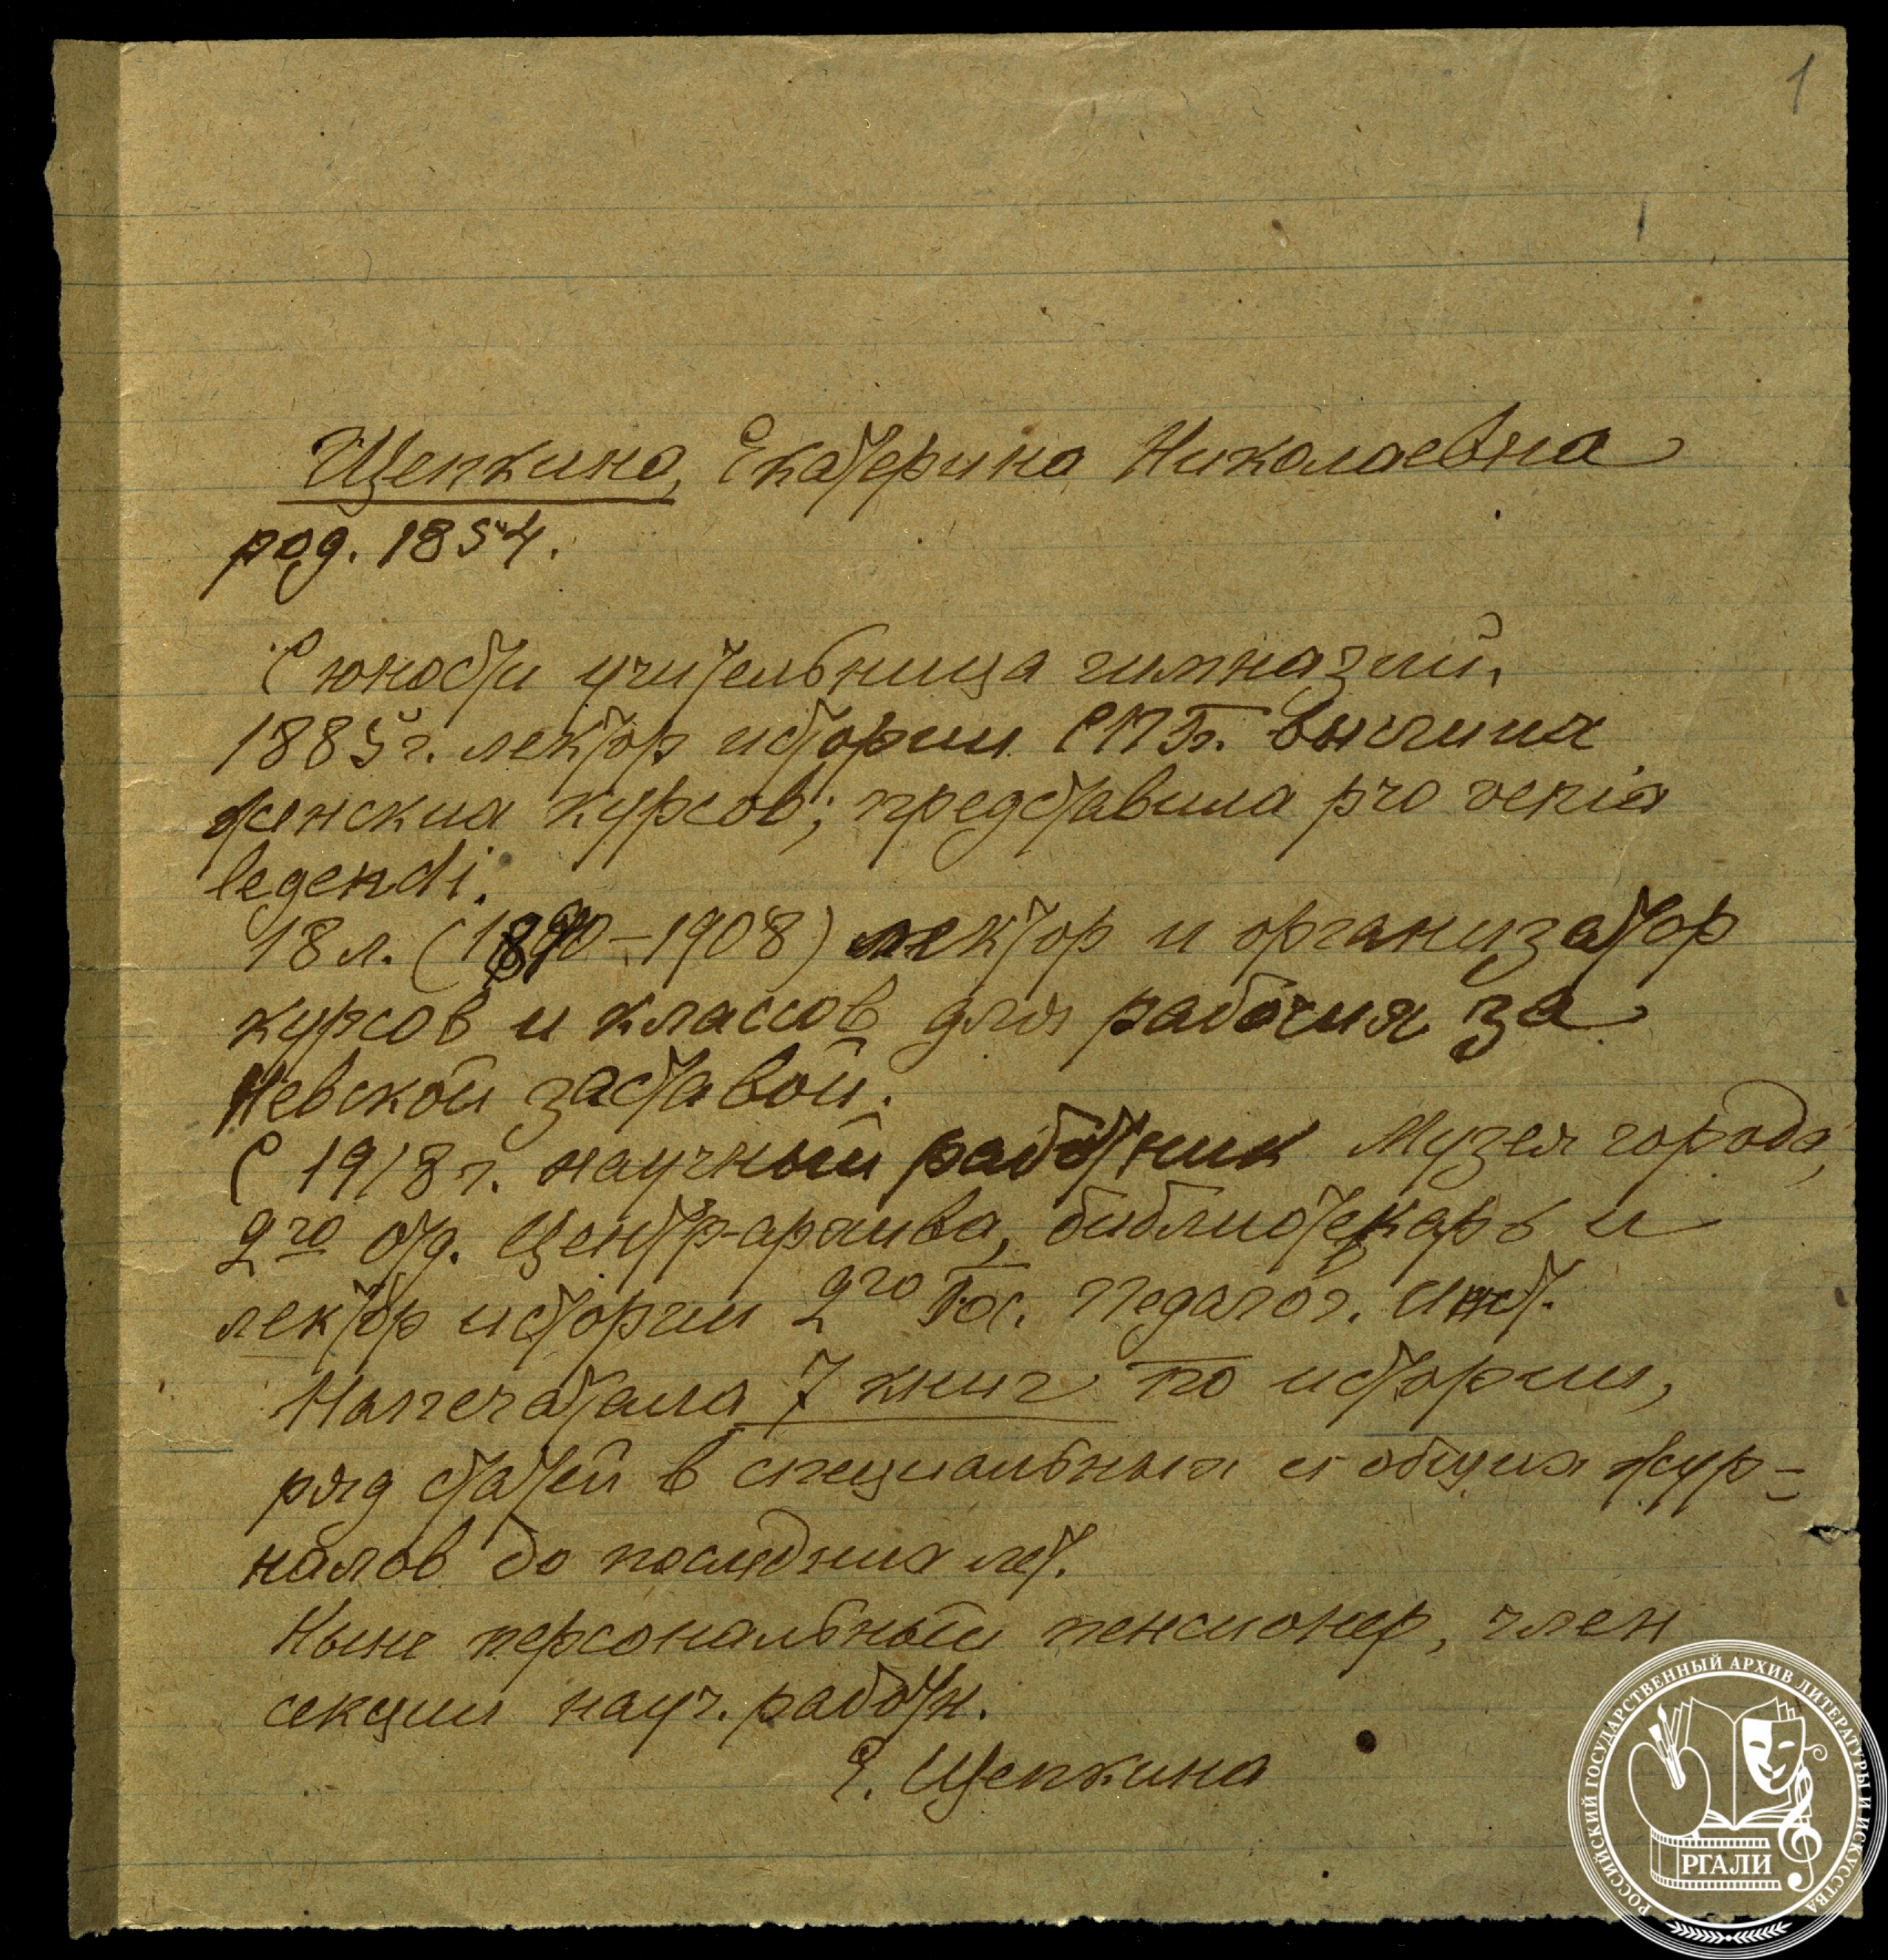 1
Щепкина, Екатерина Николаевна
род. 1854.
С юности учительница гимназий,
1885 г. лектор истории СПБ. высших
женских курсов; представила pro venia
legendi.
18 л. (1890–1908) лектор и организатор
курсов и классов для рабочих за
Невской заставой.
С 1918 г. научный работник Музея города,
2го отд. Центр-архива, библиотекарь и
лектор истории 2го Гос. Педагог. Инст.
Напечатала 7 книг по истории,
ряд статей в специальных и общих жур-
налов до последних лет.
Ныне персональный пенсионер, член
секции науч. работн.
Е. Щепкина
РОССИЙСКИЙ ГОСУДАРСТВЕННЫЙ АРХИВ ЛИТЕРАТУРЫ И ИСКУССТВА
РГАЛИ